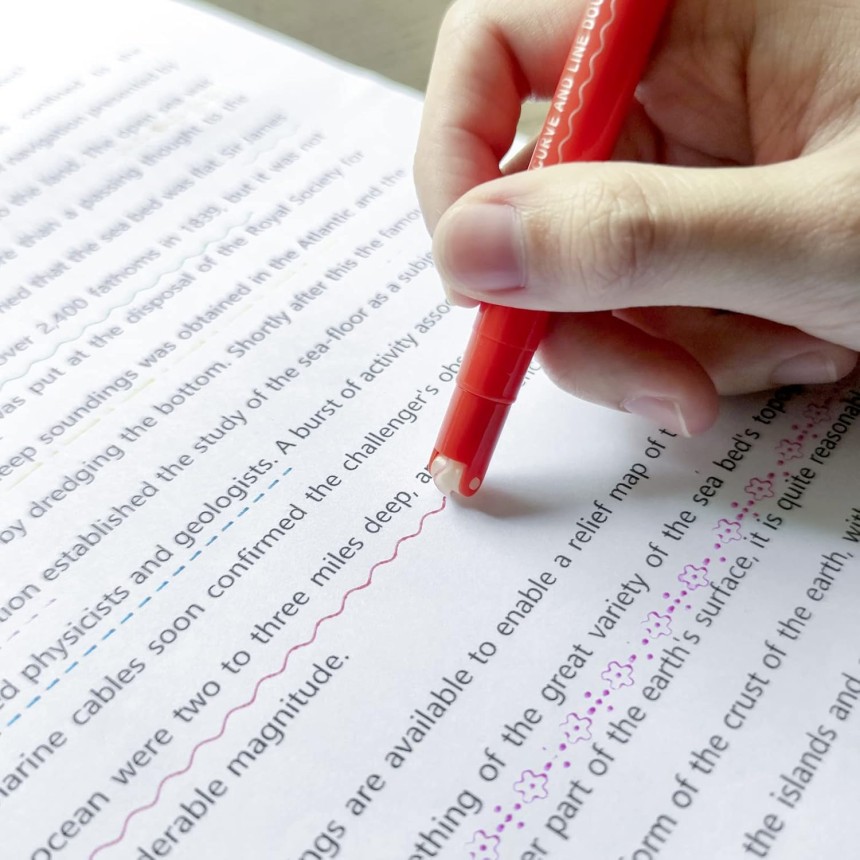 CURVE AND LINE
confined to the
navigation presented by
to the land, in spite
than a passing thought to the
that the sea bed was flat. Sir James
over 2,400 fathoms in 1839, but it was not
was put at the disposal of the Royal Society for
deep soundings was obtained in the Atlantic and the
by dredging the bottom. Shortly after this the
established the study of the sea-floor as a
physicists and geologists. A burst of activity
cables soon confirmed the challenger's
ocean were two to three miles deep,
magnitude.
are available to enable a relief map of
of the great variety of the sea bed's
part of the earth's surface, it is quite
of the crust of the earth,
the islands and